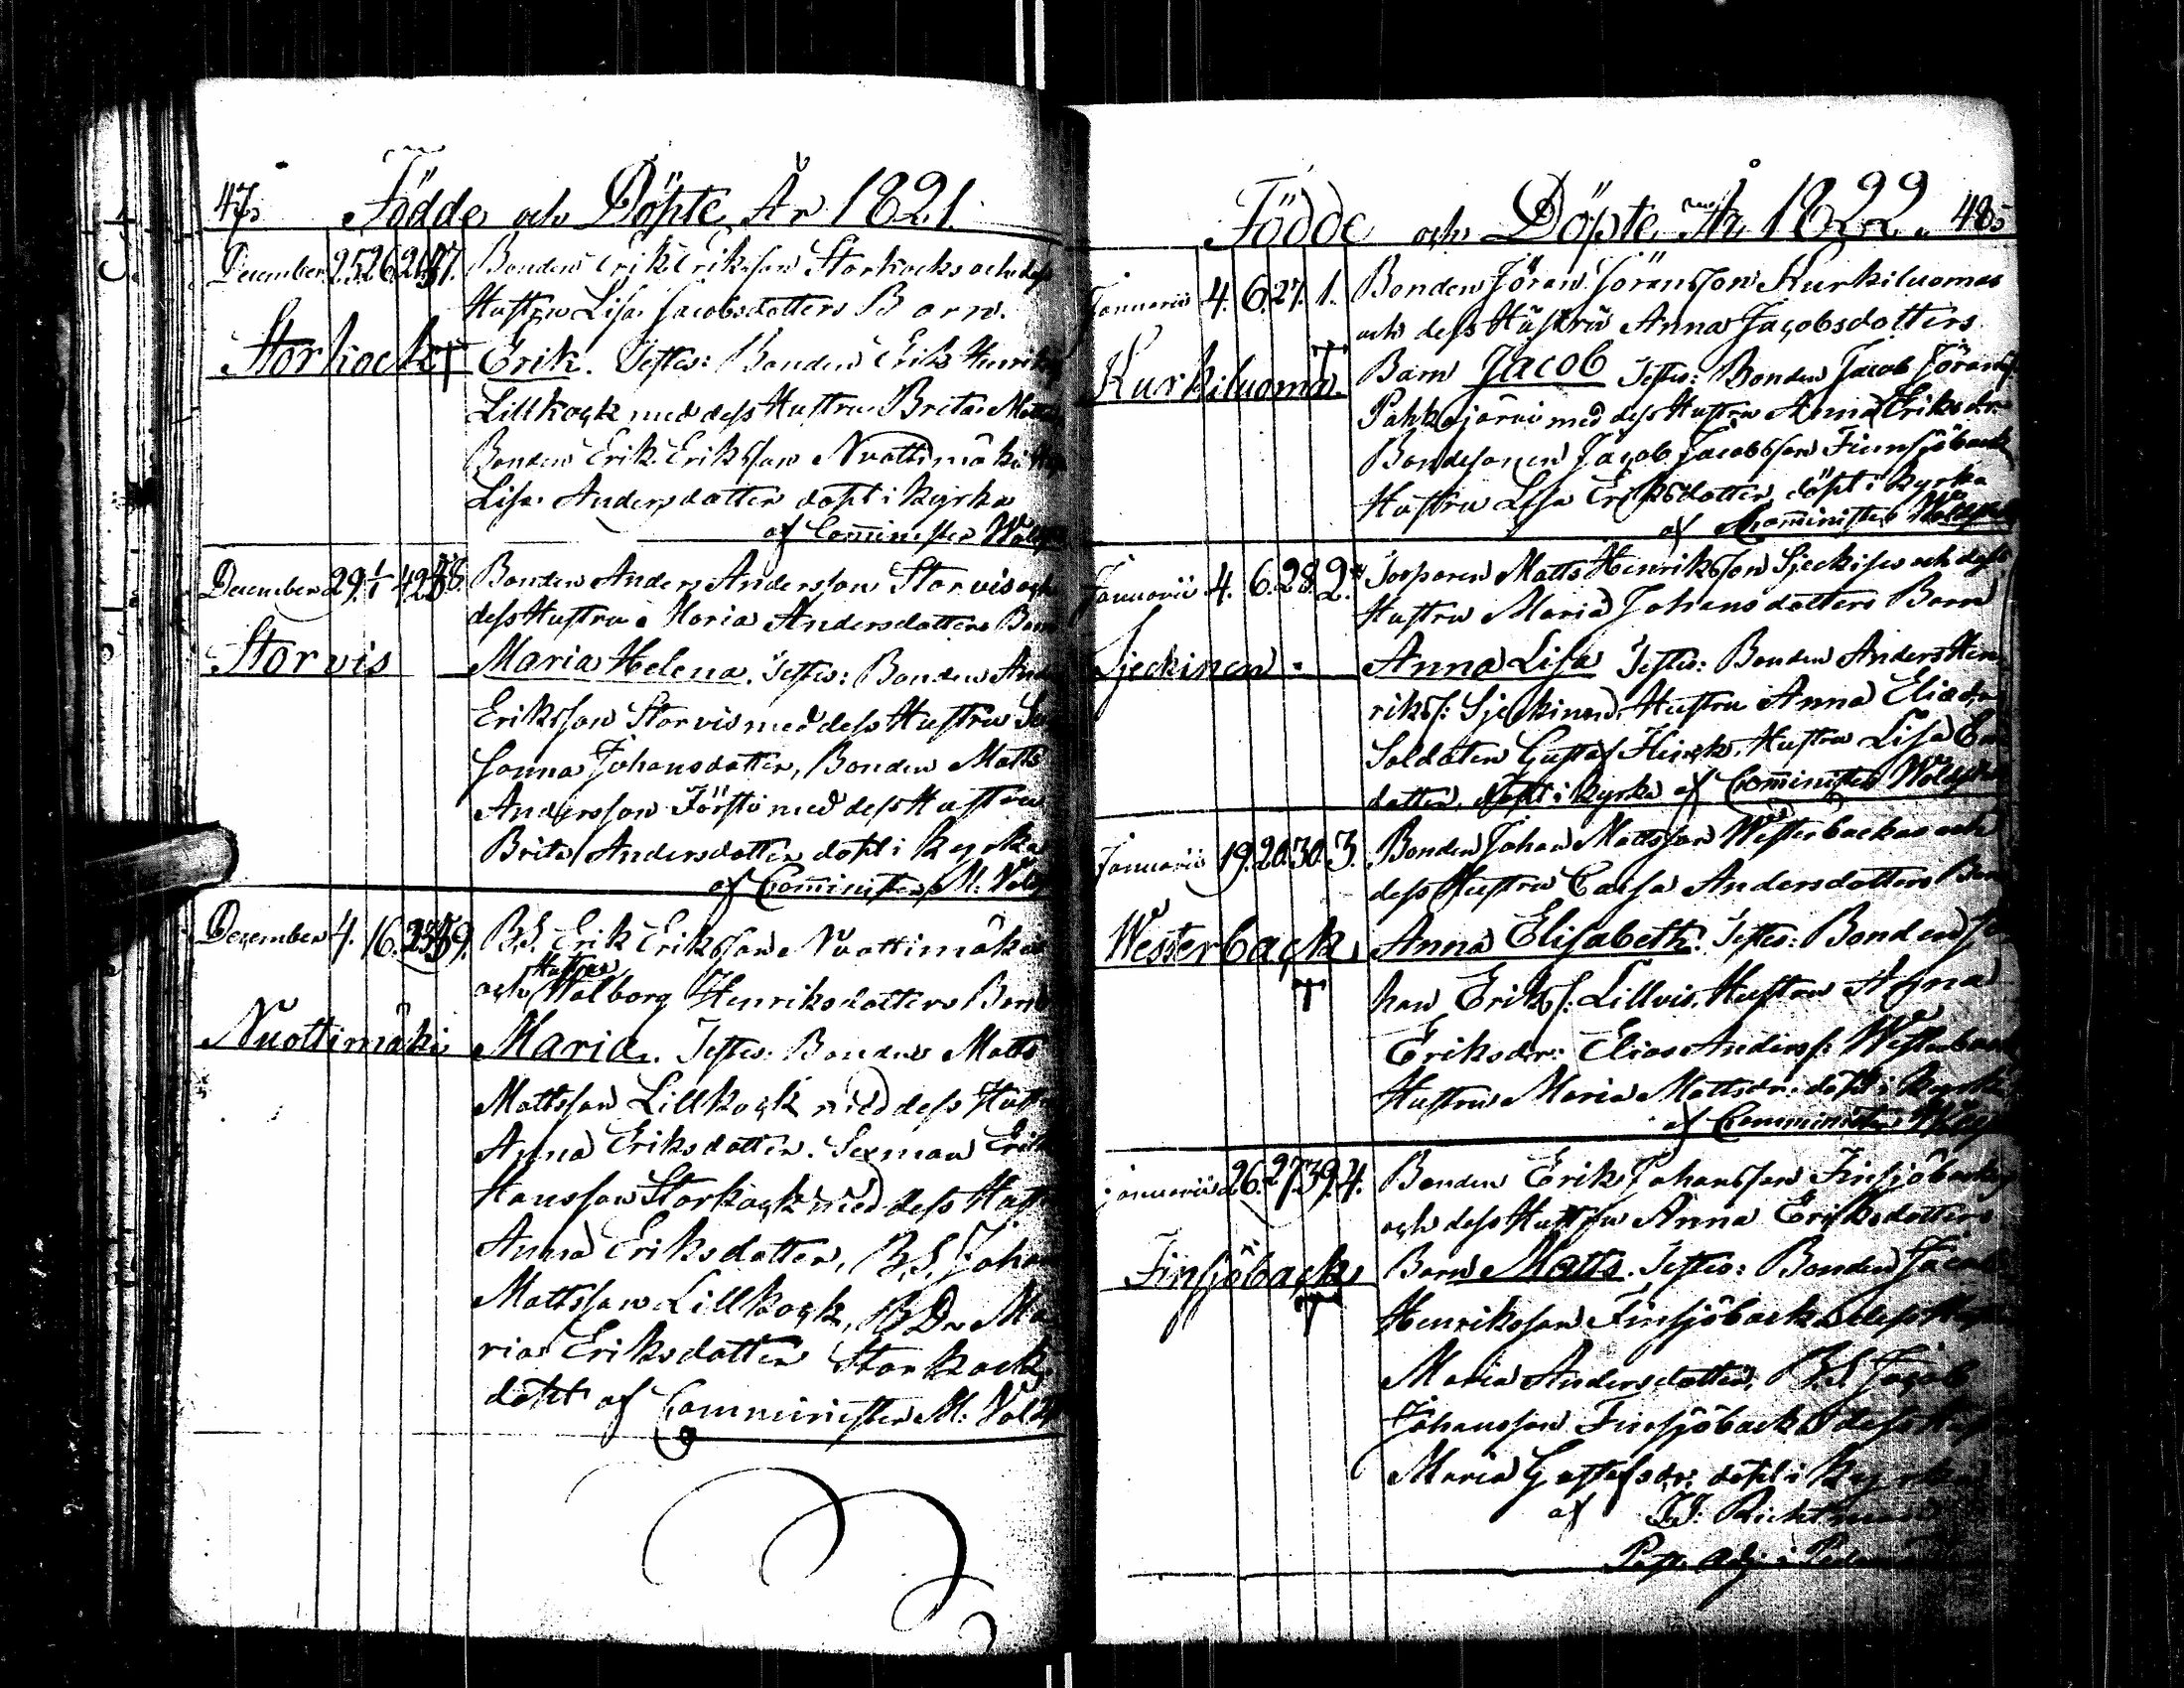 47.
Födde och Döpte År 1821.
December 25. 26. 26. 57. Bonden Erik Eriksson Storkocks och dess
Hustru Lisa Jacobsdotters Barn.
Storkock † Erik. Testes: Bonden Erik Henriks
Lillkock med dess Hustru Brita Matts
Bonden Erik Eriksson Nuottimäki
Lisa Andersdotter döpt i kyrka
af Comminister
December 29. 1/1 42. 58. Bonden Anders Andersson Storvis och
dess Hustru Maria Andersdotters Barn
Storvis Maria Helena. Testes: Bonden And
Eriksson Storvis med dess Hustru Su
sanna Johansdotter, Bonden Matts
Andersson Försti med dess Hustru
Brita Andersdotter döpt i kyrka
af Comminister M.
December 4. 16. 23. 59. B.S. Erik Eriksson Nuottimäki
Hustrus
och Walborg Henriksdotters Barn
Nuottimäki Maria. Testes: Bonden Matts
Mattsson Lillkock med dess Hustru
Anna Eriksdotter. Sexman Erik
Hansson Storkock med dess Hustru
Anna Eriksdotter, B.S. Johan
Mattsson Lillkock, B.Dr. Ma
ria Eriksdotter Storkock
döpt af Comminister M:
Födde och Döpte År 1822. 48.
Januarii 4. 6. 27. 1. Bonden Jöran Göransson Kurkiluomas
och dess Hustru Anna Jacobsdotters
Kurkiluoma. † Barn Jacob Testes: Bonden Jacob Jörans
Pahkajärvi med dess Hustru Anna Eriksdr.
Bondesonen Jacob Jacobsson Finnsjöback
Hustru Lisa Eriksdotter, döpt i kyrka
af Comminister
Januarii 4. 6. 28. 2. Torparen Matts Henriksson Sjeckises och dess
Hustru Maria Johansdotters Barn
Sjeckinen Anna Lisa Testes: Bonden Anders Hen
rikss: Sjeckinen, Hustru Anna Eliaedr
Soldaten Gustaf Hirsk, Hustru Lisa
dotter, döpt i kyrka af Comminister
Januarii 19. 20. 30. 3. Bonden Johan Mattsson Westerbackas och
dess Hustru Caisa Andersdotters Barn
Westerback † Anna Elisabeth. Testes: Bonden Jo
han Erikss: Lillvis, Hustru Anna
Eriksdr: Elias Anderss: Westerback
Hustru Maria Mattsdr: döpt i kyrka
af Comminister
Januarii 26. 27. 39. 4. Bonden Erik Johansson Finsjöbacks
och dess Hustru Anna Eriksdotters
Finsjöback † Barn Matts. Testes: Bonden Jacob
Henriksson Finsjöback dess Hustru
Maria Andersdotter, B.S. Jacob
Johansson Finsjöback dess
Maria Gustafsdr: döpt i kyrka
af
Past. Adj: i